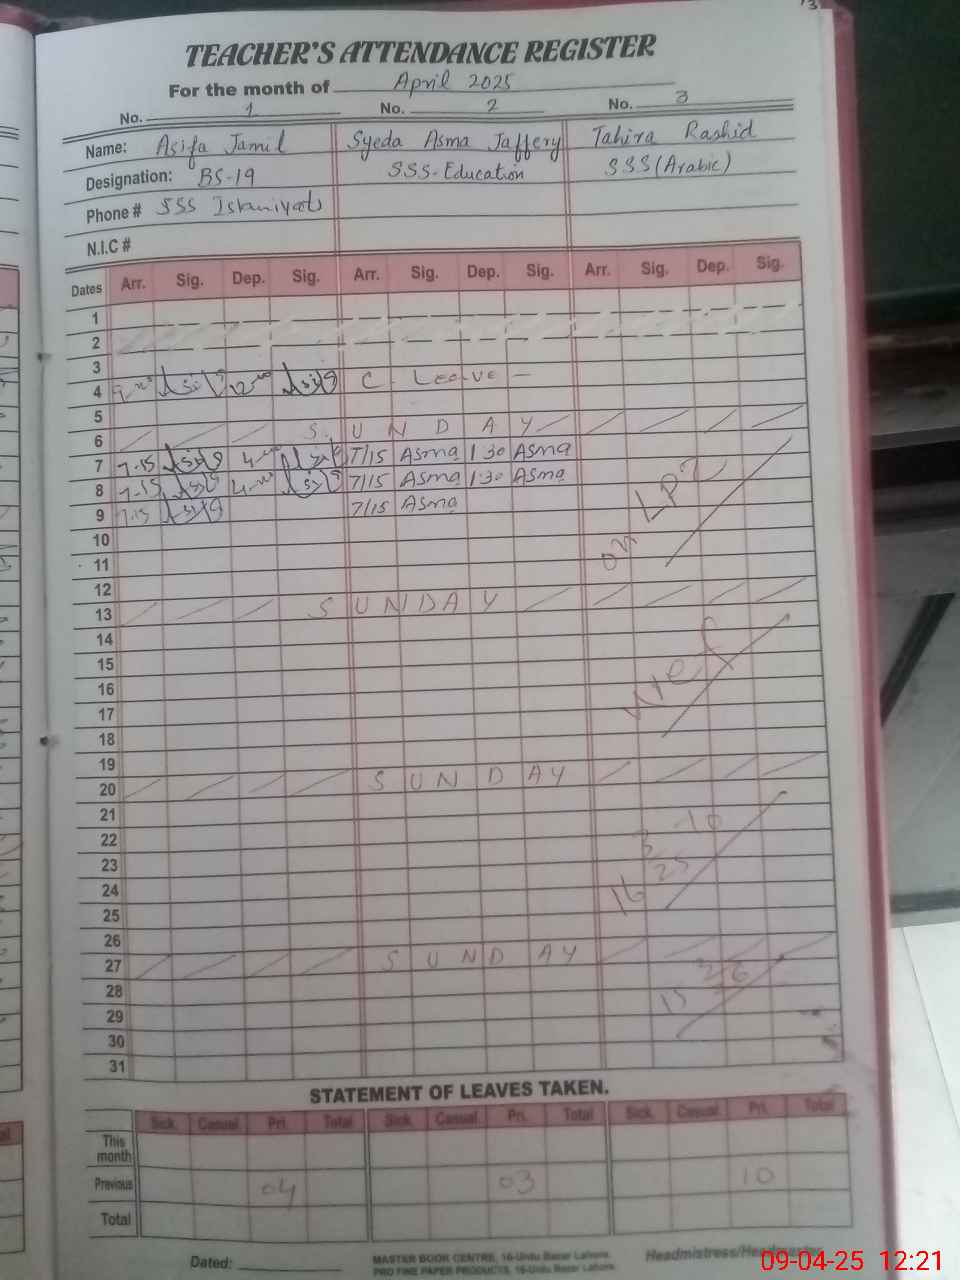 13
TEACHER'S ATTENDANCE REGISTER
For the month of April 2025
No. 1 No. 2 No. 3
Name: Asifa Jamil Syeda Asma Jaffery Tahira Rashid
Designation: BS-19 SSS-Education SSS (Arabic)
Phone # SSS Islamiyat
N.I.C #
Dates Arr. Sig. Dep. Sig. Arr. Sig. Dep. Sig. Arr. Sig. Dep. Sig.
1
2
3
4 C. Leave -
5
6 SUNDAY
7 7-15 7/15 Asma 1:30 Asma
8 7-15 7/15 Asma 1:30 Asma
9 7-15 7/15 Asma
on LPR
10
11
12
13 SUNDAY
14
15
wef
16
17
18
19
20 SUNDAY
21
22
23
24
25
26
27 SUNDAY
28
29
30
31
STATEMENT OF LEAVES TAKEN.
Sick. Casual. Pri. Total Sick. Casual. Pri. Total Sick. Casual. Pri. Total
This month
Previous 04 03 10
Total
Dated:
MASTER BOOK CENTRE, 16-Urdu Bazar Lahore.
PRO FINE PAPER PRODUCTS, 16-Urdu Bazar Lahore.
Headmistress/Headmaster
09-04-25 12:21